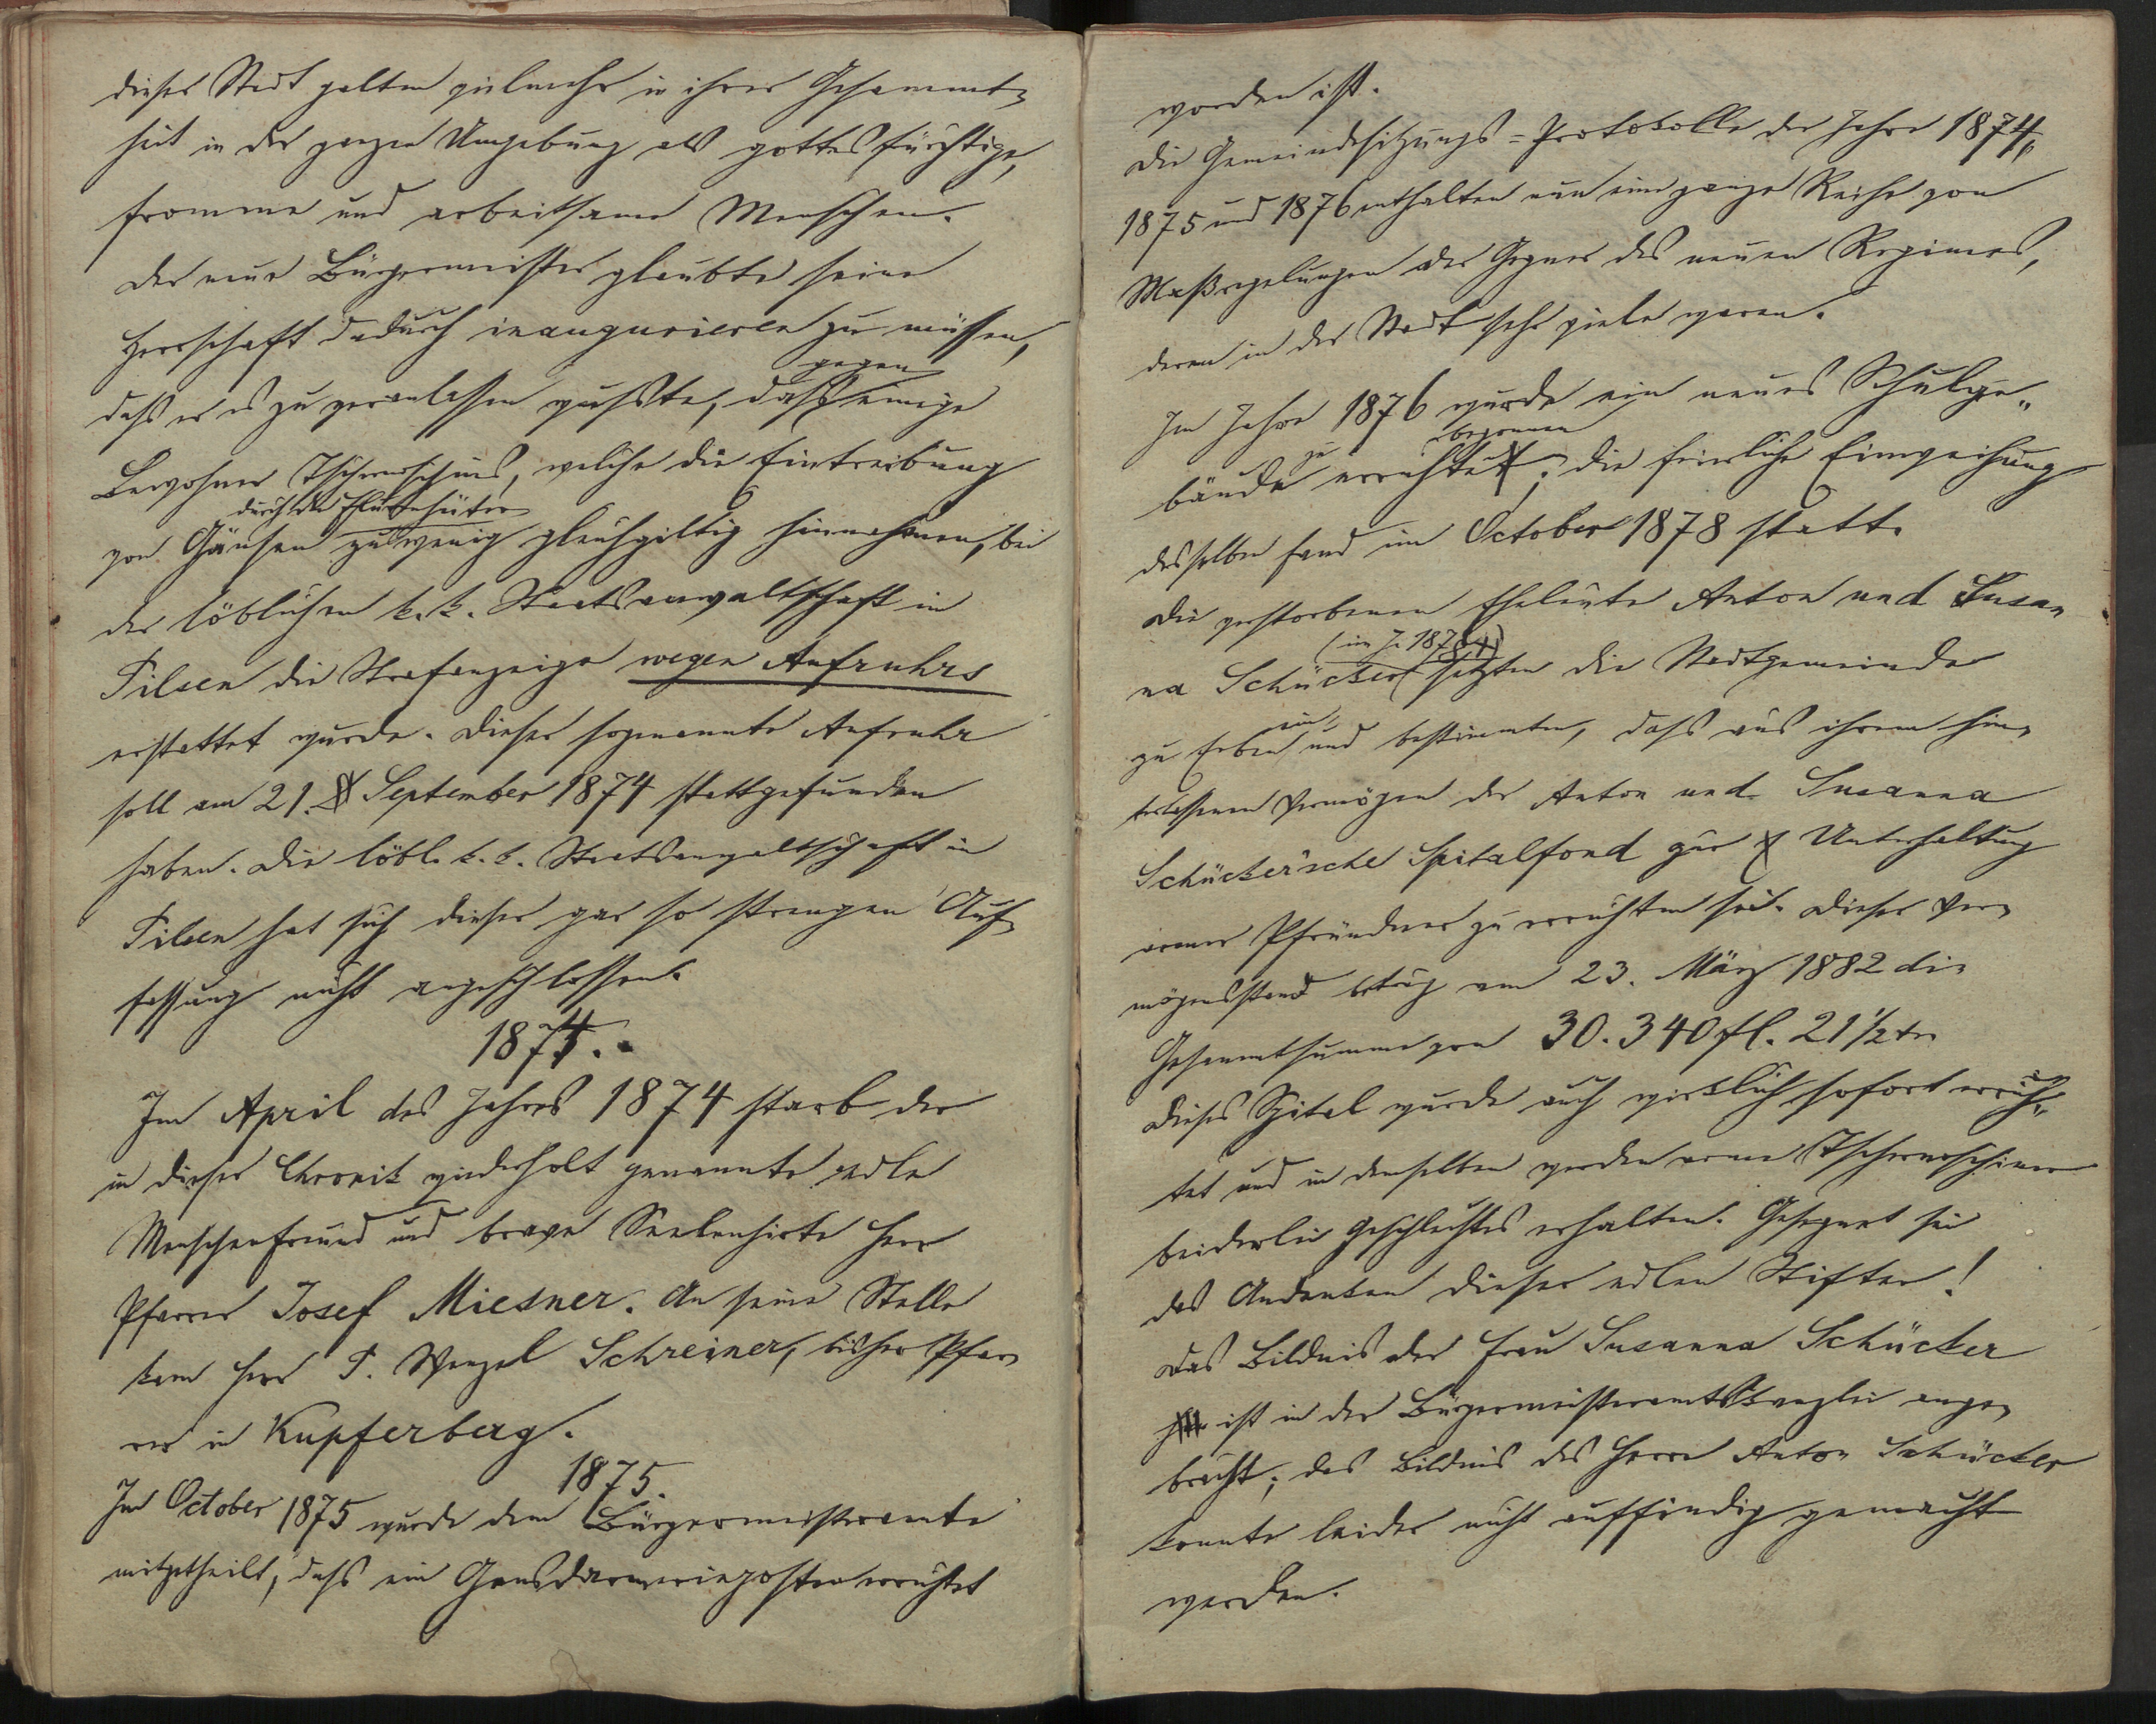 dieser Stadt galten vielmehr in ihrer Gesammt-
heit in der ganzen Umgebung als gottesfürchtige,
fromme und arbeitsame Menschen.
Der neue Bürgermeister glaubte seine
Herrschaft dadurch inaugurieren zu müssen,
daß er es zu veranlassen wußte, daß gegen einige
Bewohner Tschernoschins, welche die Eintreibung
von Gänsen durch die Flurenhüter zu wenig gleichgiltig hinnahmen, bei
der löblichen k. k. Staatsanwaltschaft in
Pilsen die Strafanzeige wegen Aufruhrs
erstattet wurde. Dieser sogenannte Aufruhr
soll am 21. September 1874 stattgefunden
haben. Die löbl. k. k. Staatsanwaltschaft in
Pilsen hat sich dieser gar so strengen Auf-
fassung nicht angeschlossen.
1874.
Im April des Jahres 1874 starb der
in dieser Chronik wiederholt genannte edle
Menschenfreund und brave Seelenhirte Herr
Pfarrer Josef Miesner. An seine Stelle
kam Herr P. Wenzel Schreiner, bisher Pfar-
rer in Kupferberg.
1875.
Im October 1875 wurde dem Bürgermeisteramte
mitgetheilt, daß ein Gensdarmerieposten errichtet
worden ist.
Die Gemeindesitzungs-Protokolle der Jahre 1874,
1875 und 1876 enthalten nun eine ganze Reihe von
Maßregelungen der Gegner des neuen Regimes,
deren in der Stadt sehr viele waren.
Im Jahre 1876 wurde ein neues Schulge-
bäude zu errichten begonnen; die feierliche Einweihung
desselben fand im October 1878 statt.
Die verstorbenen Eheleute Anton und Susan-
na Schücker (im J. 1878) setzten die Stadtgemeinde
zu Erben ein, und bestimmten, daß aus ihrem hin-
terlassenen Vermögen der Anton und Susanna
Schücker'sche Spitalfond zur Unterhaltung
armer Pfründner zu errichten sei. Dieser Ver-
mögensstand betrug am 23. März 1882 die
Gesammtsumme von 30.340 fl. 21 1/2 kr.
Dieses Spital wurde auch wirklich sofort errich-
tet und in demselben werden arme Tschernoschiner
beiderlei Geschlechtes erhalten. Gesegnet sei
das Andenken dieser edlen Stifter!
Das Bildnis der Frau Susanna Schücker
ist in der Bürgermeisteramtskanzlei ange-
bracht; das Bildnis des Herrn Anton Schücker
konnte leider nicht auffindig gemacht
werden.